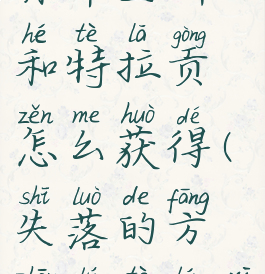 hé tè lā gòng
和特拉贡
zěn me huò dé
怎么获得(
shī luò de fāng
失落的方